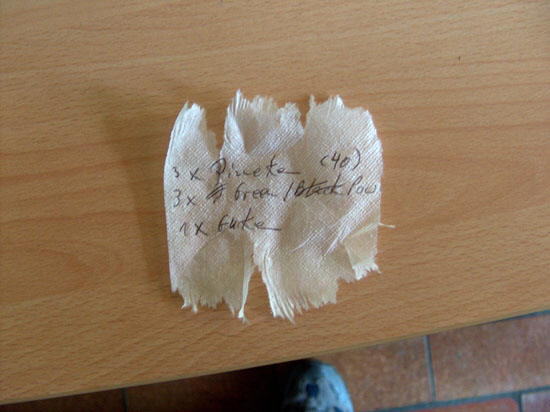 3 x Pinceta (40)
3 x Green / Black Pow
1 x Gurke